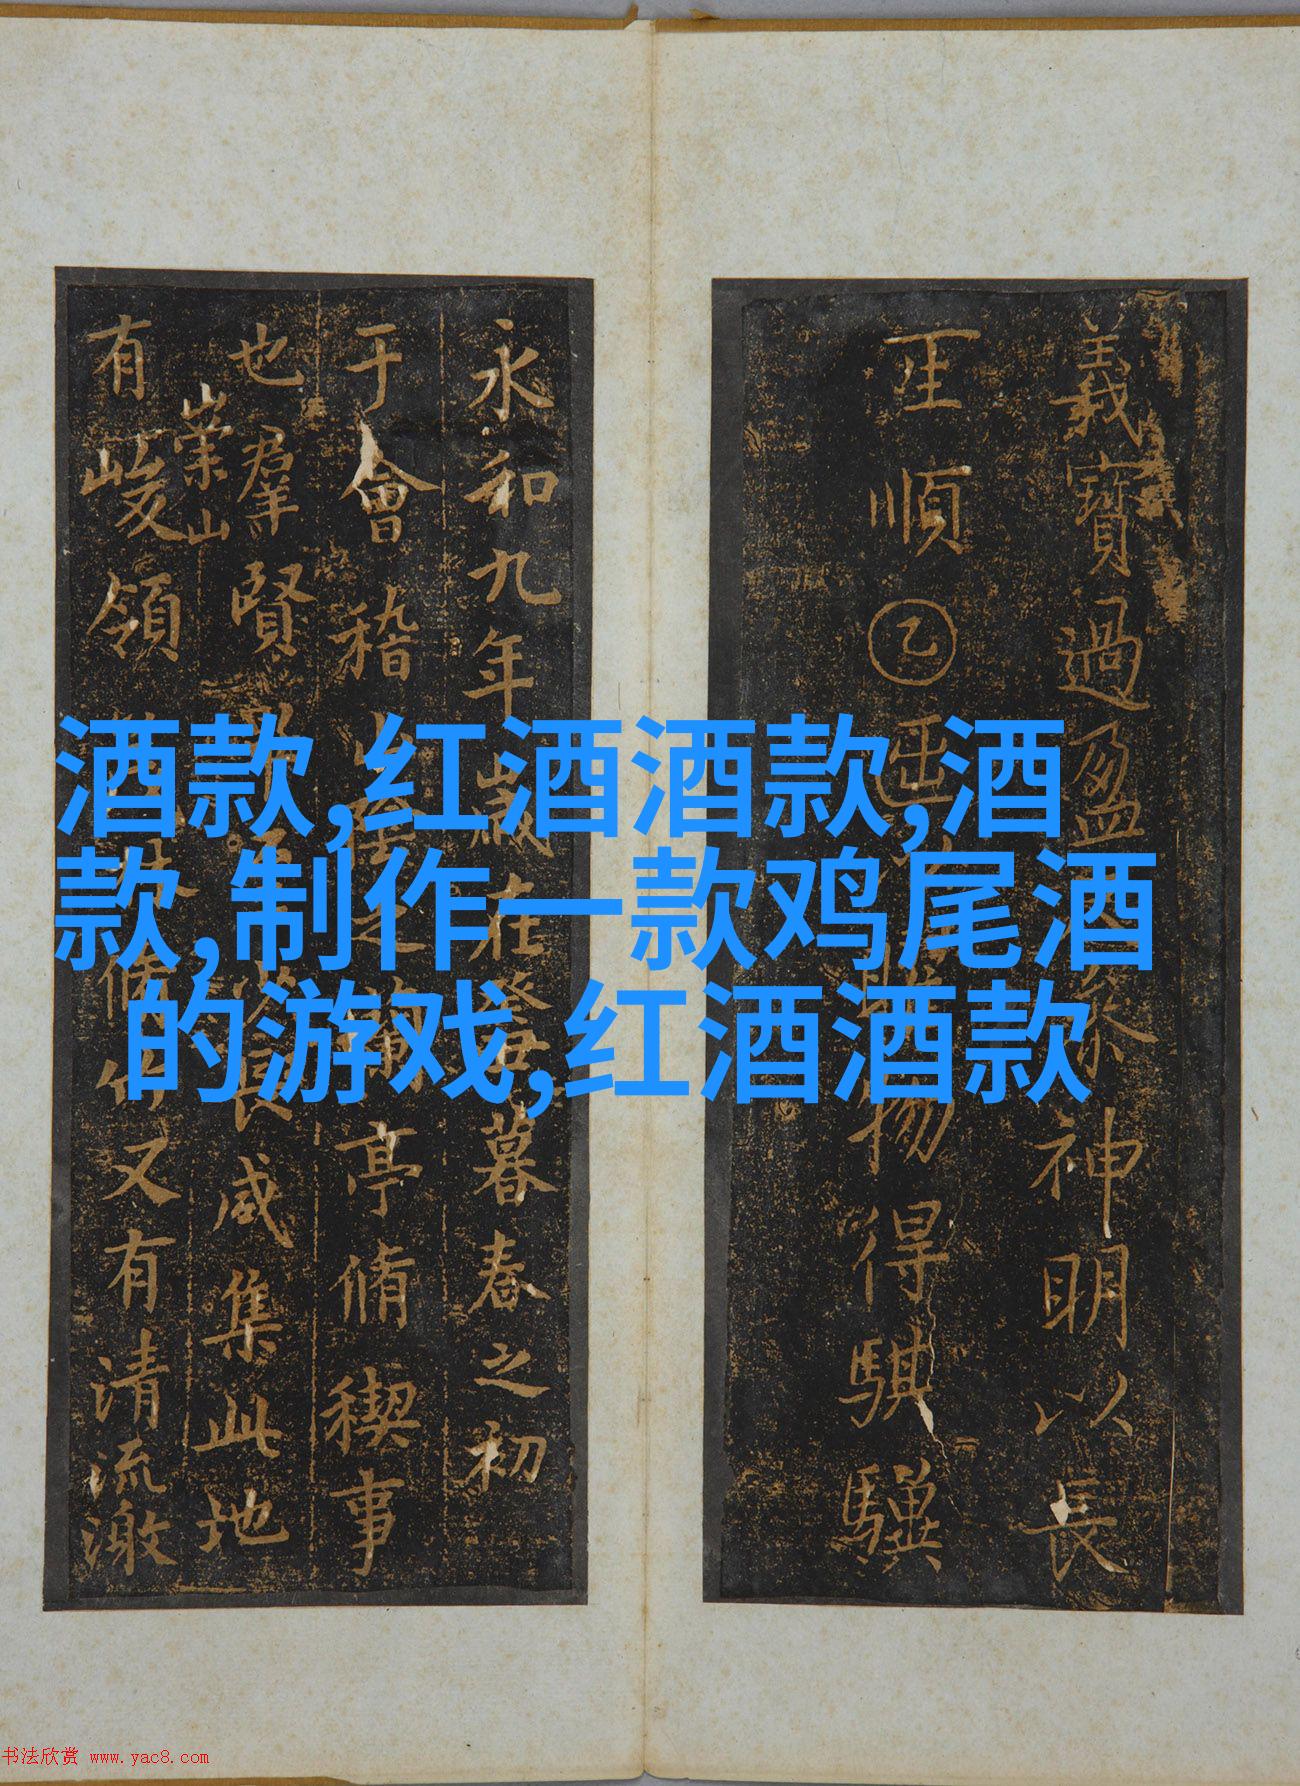 義寶過盈
神明以長
王順乙
物得騏驥
酒款,红酒酒款,酒
款,制作一款鸡尾酒
的游戏,红酒酒款
永和九年歲在癸丑暮春之初
于會稽山陰之蘭亭脩稧事
也羣賢畢至少長咸集此地
崇山
有峻領茂林脩竹又有清流激
书法欣赏 www.yac8.com